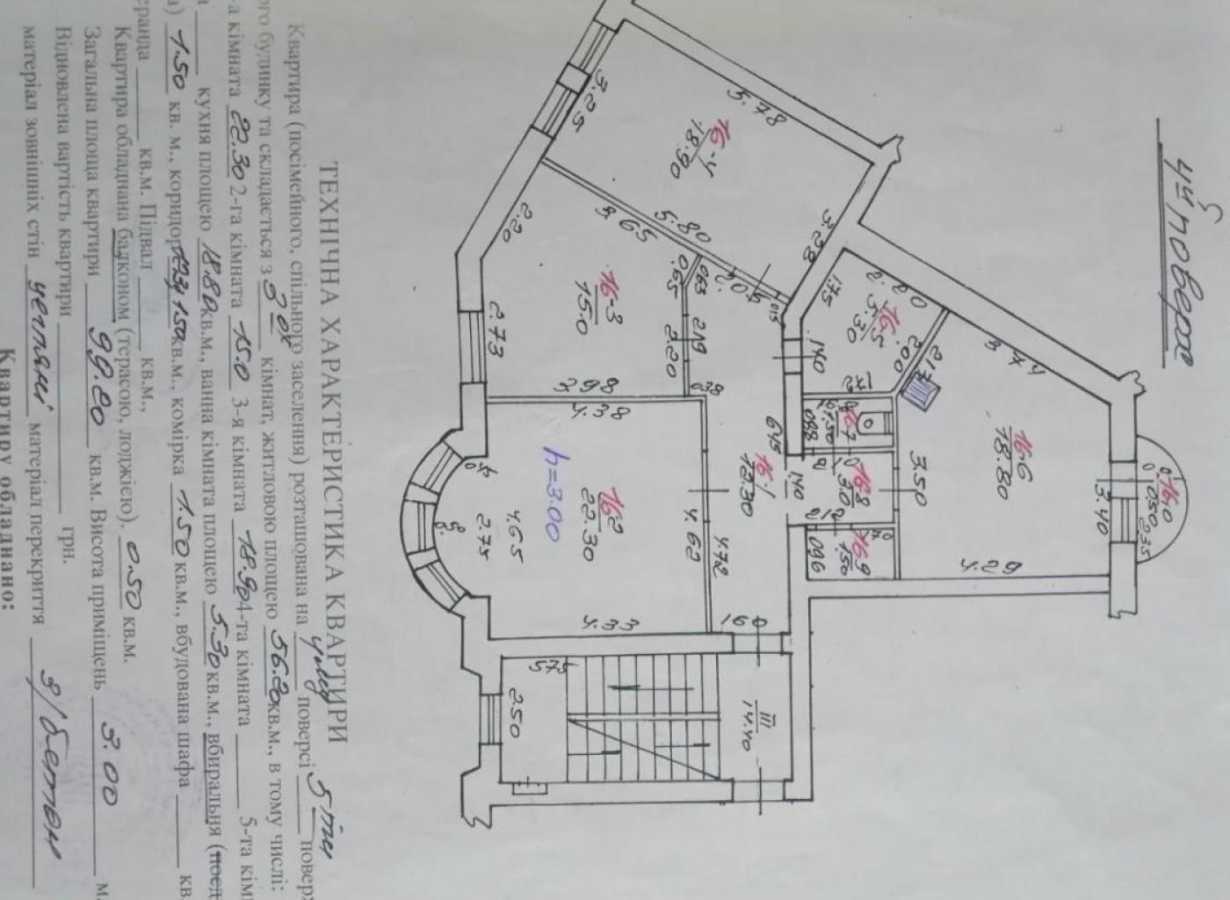 4й поверх
5.78
3.25
16-4
18.90
3.28
5.80
5.65
2.20
0.65
0.63
16-3
15.0
2.73
2.20
2.19
3.98
0.28
4.38
1.75
16-5
5.30
2.00
1.40
1.72
16-7
1.50
0.88
16-6
18.80
3.50
3.40
4.29
16-10
0.50
2.35
16-8
3.10
2.12
1.40
16-9
1.50
0.90
1.70
16-1
13.30
6.45
h=3.00
16-2
22.30
4.65
2.75
4.62
4.72
4.33
1.60
5.75
2.50
III
14.40
ТЕХНІЧНА ХАРАКТЕРИСТИКА КВАРТИРИ
Квартира (посімейного, спільного заселення) розташована на 4му поверсі 5 ти поверх
ого будинку та складається з 3 ох кімнат, житловою площею 56.20 кв.м., в тому числі:
-а кімната 22.30 2-га кімната 15.0 3-я кімната 18.90 4-та кімната 5-та кім
кухня площею 18.80 кв.м., ванна кімната площею 5.30 кв.м., вбиральня (поєд
а) 1.50 кв. м., коридор 13,3 1.50 кв.м., комірка 1.50 кв.м., вбудована шафа кв
еранда кв.м. Підвал кв.м.,
Квартира обладнана балконом (терасою, лоджією). 0.50 кв.м.
Загальна площа квартири 99.80 кв.м. Висота приміщень 3.00 м.
Відновлена вартість квартири грн.
матеріал зовнішніх стін цегляні матеріал перекриття з/бетон
Квартиру обладнано: